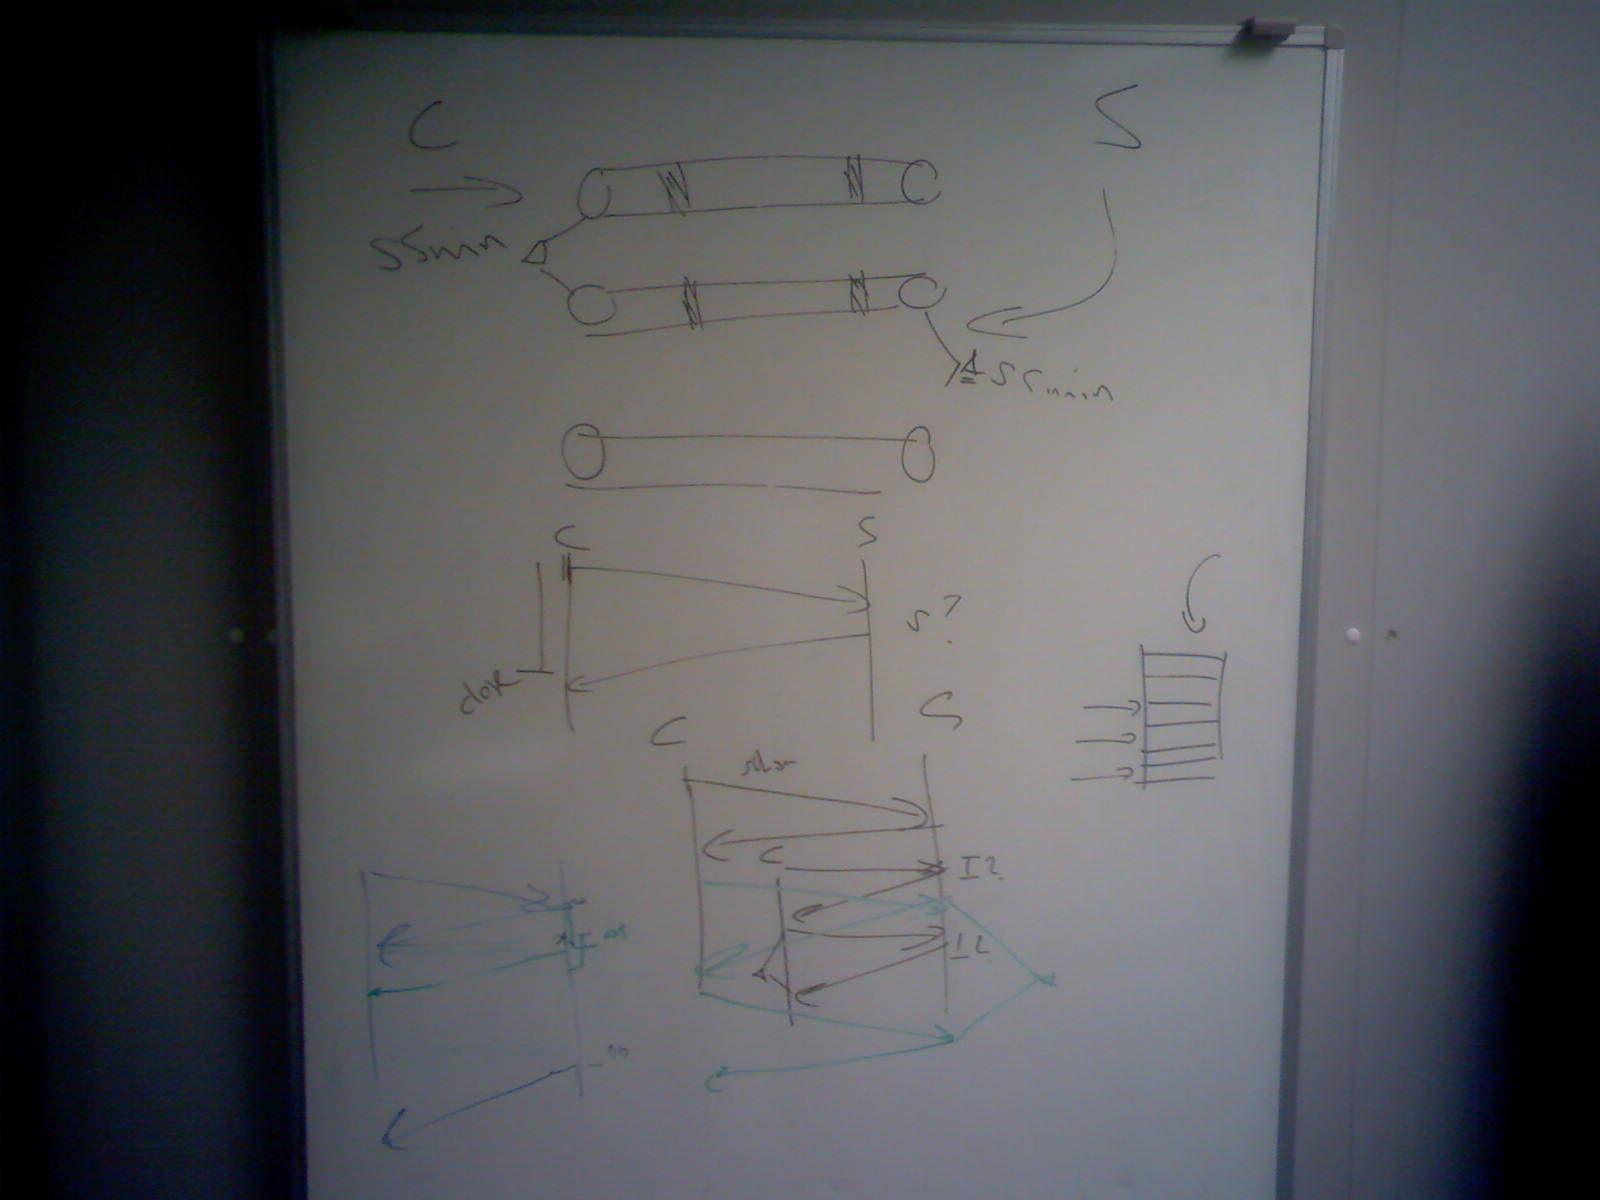 C
S
55min
55min
C
S
s?
close
C
S
C
I?
I?